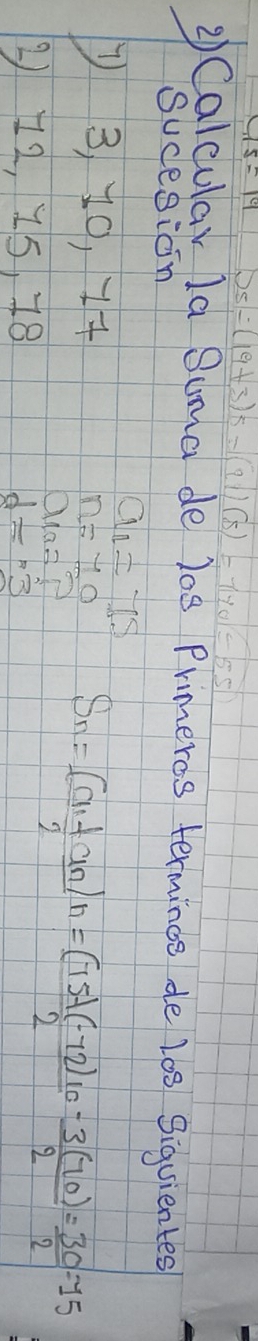 2) Calcular la Suma de los Primeros terminos de los siguientes
Sucesión
1) 3, 10, 17
2) 12, 15, 18
a₁ = 15
n = 10
a₁₀ = ?
d = -3
Sn = (a₁ + an) n / 2 = (15 + (-12) 10 / 2 = 3(10) / 2 = 30 / 2 = 15